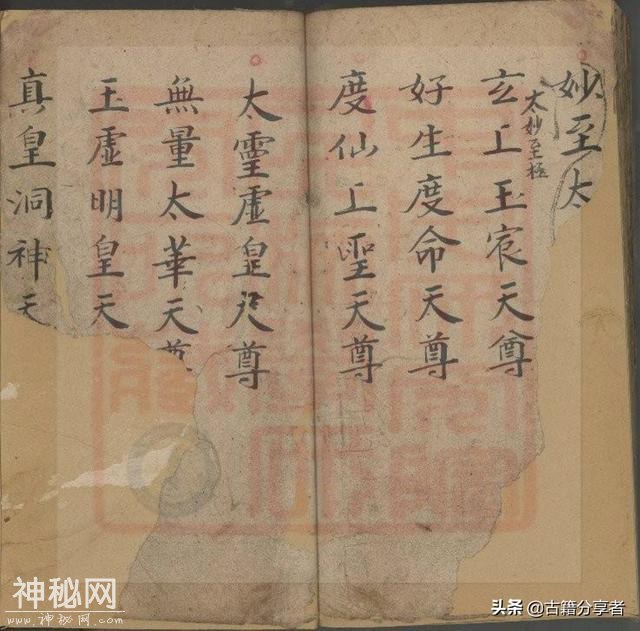 妙至太
太妙至極
玄上玉宸天尊
好生度命天尊
度仙上聖天尊
太靈虛皇天尊
無量太華天尊
玉虛明皇天
真皇洞神天
神秘网
www.神秘网.com
头条 @古籍分享者